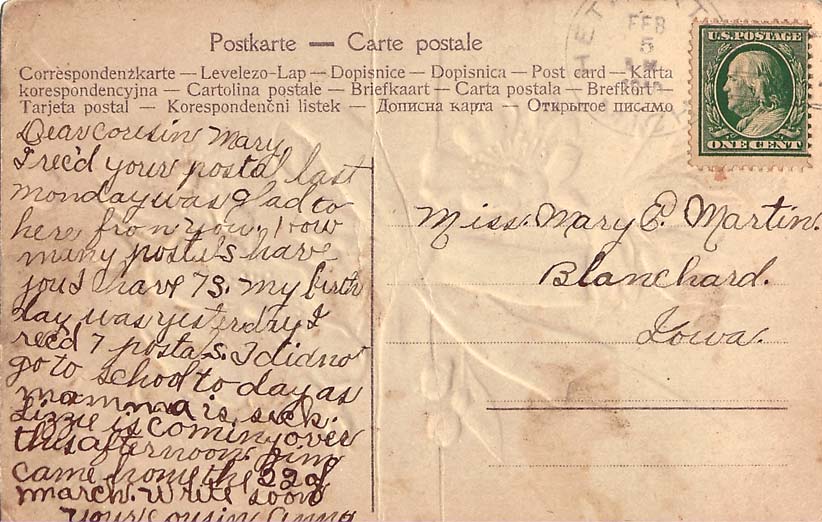 Postkarte — Carte postale
Correspondenzkarte — Levelezo-Lap — Dopisnice — Dopisnica — Post card — Karta
korespondencyjna — Cartolina postale — Briefkaart — Carta postala — Brefkort —
Tarjeta postal — Korespondenčni listek — Дописна карта — Открытое письмо
FEB
5
U.S. POSTAGE
ONE CENT
Dear cousin Mary
I rec'd your postal last
monday was glad to
here from you. How
many postals have
you I have 73. my birth
day was yesterdry I
rec'd 7 postals. I did not
go to school to day as
mamma is sick.
Lizzie is coming over
this afternoon. Jim
came home the 22 of
march. write soon
your cousin Anna
Miss. Mary E. Martin.
Blanchard.
Iowa.